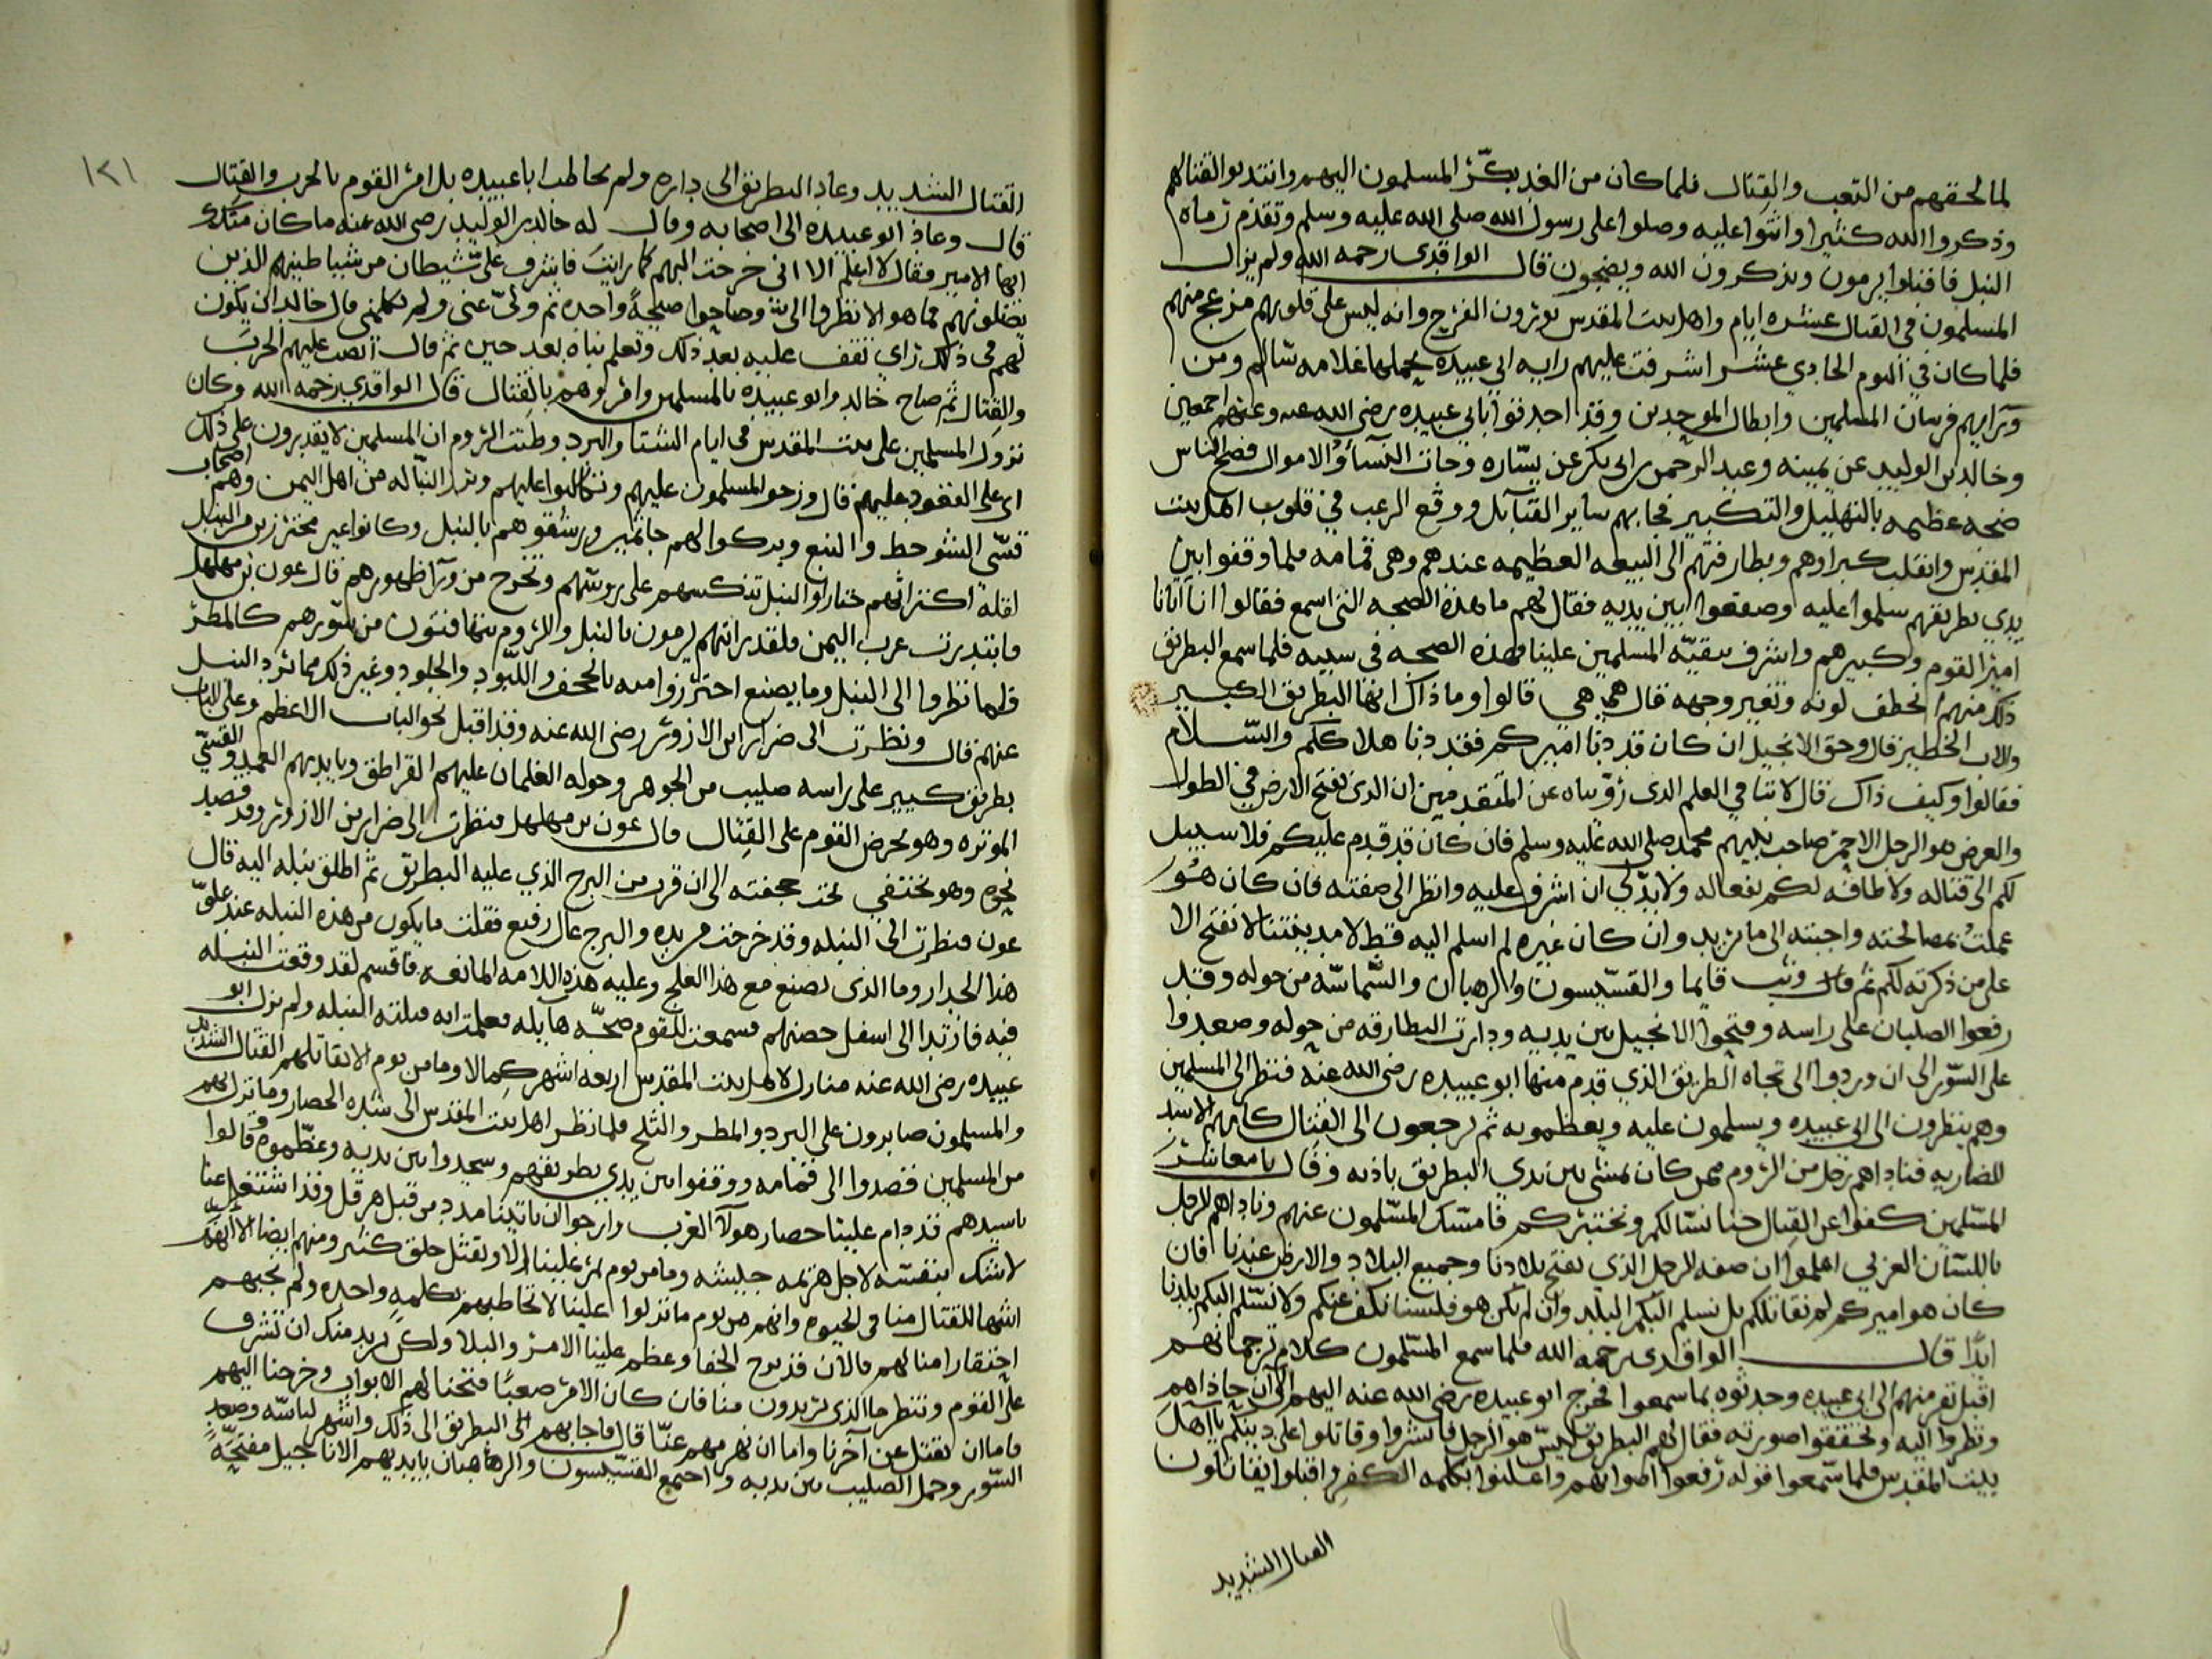 لما لحقهم من التعب والقتال فلما كان من الغد بكّر المسلمون اليهم وانتدبوا لقتالهم
وذكروا الله كثيرا واثنوا عليه وصلوا على رسول الله صلى الله عليه وسلم وتقدم رماه
النبل فاقبلوا يرمون ويذكرون الله ويضجون قال الواقدي رحمه الله ولم يزل
المسلمون في القتال عشره ايام واهل بيت المقدس يوثرون الفرح وانه ليس على قلوبهم منهم
فلما كان في اليوم الحادي عشر اشرفت عليهم رايه ابي عبيده يحملها غلامه سالم ومن
ورايهم فرسان المسلمين وابطال الموحدين وقد احدقوا بابي عبيده رضي الله عنه وعنهم اجمعين
وخالد بن الوليد عن يمينه وعبد الرحمن بن ابي بكر عن يساره وجات النسآ والاموال فضج الناس
ضجه عظيمه بالتهليل والتكبير فجابهم ساير القبآيل ووقع الرعب في قلوب اهل بيت
المقدس وانقلب كبراوهم وبطارقتهم الى البيعه العظيمه عندهم وهي قمامه فلما وقفوا بين
يدي بطريقهم سلموا عليه وصفقوا بين يديه فقال لهم ما هذه الضجه التي اسمع فقالوا اتانا
امير القوم وكبيرهم واشرف ببقيّه المسلمين علينا فهذه الضجه في سببه فلما سمع البطريق
ذلك منهم انخطف لونه وتغير وجهه قال هي هي قالوا وما ذاك ايها البطريق الكبير
والاب الخطير قال وحق الانجيل ان كان قد دنا اميركم فقد دنا هلاككم والسّلام
فقالوا وكيف ذاك قال لاننا في العلم الذي رويناه عن المتقدمين ان الذي يفتح الارض في الطول
والعرض هو الرجل الاحمر صاحب نبيهم محمد صلى الله عليه وسلم فان كان قد قدم عليكم فلا سبيل
لكم الى قتاله ولا طاقه لكم بفعاله ولا بدّ لي ان اشرف عليه وانظر الى صفته فان كان هو
عملت بمصالحته واجبته الى ما يريد وان كان غيره لم اسلم اليه قط لان مدينتنا لا تفتح الا
على من ذكرته لكم ثم قال وثب قايما والقسّيسون والرهبان والشماسّه من حوله وقد
رفعوا الصلبان على راسه وفتحوا الانجيل بين يديه ودارت البطارقه من حوله وصعدوا
على السّور الى ان وردوا الى تجاه الطريق الذي قدم منها ابو عبيده رضي الله عنه فنظر الى المسلمين
وهم ينظرون الى ابي عبيده ويسلمون عليه ويعظمونه ثم يرجعون الى القتال كانهم الاسد
الضاريه فناداهم رجل من الروم ممن كان يمشي بين يدي البطريق باذنه وقال يا معاشر
المسّلمين كفوا عن القتال حتا نسّالكم ونختبركم فامسّك المسّلمون عنهم وناداهم الرجل
باللسّان العربي اعلموا ان صفه الرجل الذي يفتح بلادنا وجميع البلاد والارض عندنا فان
كان هو اميركم لم نقاتلكم بل نسلم اليكم البلد وان لم يكن هو فلسنا نكف عنكم ولا نسّلم اليكم بلدنا
ابدًا قال الواقدي رحمه الله فلما سمع المسّلمون كلام ترجمانهم
اقبل نفر منهم الى ابي عبيده وحدثوه بما سمعوا فخرج ابو عبيده رضي الله عنه اليهم الى ان حاذاهم
ونظروا اليه وتحققوا صورته فقال لهم البطريق ليسّ هو الرجل فابشروا وقاتلوا على دينكم يا اهل
بيت المقدس فلما سّمعوا قوله رفعوا اصواتهم واعلنوا بكلمه الكفر واقبلوا يقاتلون
القتال الشديد
١٢١
القتال الشديد وعاد البطريق الى داره ولم يخاطب ابا عبيده بل امر القوم بالحرب والقتال
قال وعاد ابو عبيده الى اصحابه وقال له خالد بن الوليد رضي الله عنه ما كان منك
ايها الامير فقال لا اعلم الا اني خرجت اليهم كما رايت فاشرف عليّ شيطان من شياطينهم الذين
يضلونهم فما هو الا نظروا الي وصاحوا صيحةً واحده ثم ولّى عني ولم يكلمني قال خالد ان يكون
لهم في ذلك راي نقف عليه بعد ذلك وتعلم بناه بعد حين ثم قال انصب عليهم الحرب
والقتال ثم صاح خالد وابو عبيده بالمسلمين وامروهم بالقتال قال الواقدي رحمه الله وكان
نزول المسلمين على بيت المقدس في ايام الشتا والبرد وظنت الروم ان المسلمين لا يقدرون على ذلك
اي على القعود عليهم قال وزحف المسلمون عليهم وتكالبوا عليهم وبرز النبّاله من اهل اليمن وهم اصحاب
قسّي الشوحط والنبع وبركوا لهم جاثمين ورشقوهم بالنبل وكانوا غير محترزين من النبل
لقله اكتراثهم حتا راوا النبل تنكسهم على روسّهم وتخرج من ورآ ظهورهم قال عون بن مهلهل
وابتدرت عرب اليمن فلقد رايتهم يرمون بالنبل والروم يتهافتون من سّورهم كالمطر
فلما نظروا الى النبل وما يصنع احترزوا منه بالحجف واللّبود والجلود وغير ذلك مما يرد النبل
عنهم قال ونظرت الى ضرار ابن الازور رضي الله عنه وقد اقبل نحو الباب الاعظم وعلى الباب
بطريق كبير على راسه صليب من الجوهر وحوله الغلمان عليهم القراطق وبايديهم العمد والقسّي
الموتره وهو يحرض القوم على القتال قال عون بن مهلهل فنظرت الى ضرار بن الازور وقد قصد
نحوه وهو يختفي تحت حجفته الى ان قرب من البرج الذي عليه البطريق ثم اطلق نبله اليه قال
عون فنظرت الى النبله وقد خرجت من يده والبرج عال رفيع فقلت ما يكون من هذه النبله عند علوّ
هذا الجدار وما الذي تصنع مع هذا العلج وعليه هذه اللامه المانعه فاقسم لقد وقعت النبله
فيه فارتدا الى اسفل حصنهم فسمعت للقوم ضجّه هايله فعلمت انه قتلته النبله ولم يزل ابو
عبيده رضي الله عنه منازل لاهل بيت المقدس اربعه اشهر كمالا وما من يوم الا يقاتلهم القتال الشديد
والمسلمون صابرون على البرد والمطر والثلج فلما نظر اهل بيت المقدس الى شده الحصار وما نزل بهم
من المسلمين قصدوا الى قمامه ووقفوا بين يدي بطريقهم وسجدوا بين يديه وعظّموه وقالوا
يا سيدهم قد دام علينا حصار هولآ العرب وارجوا ان ياتينا مدد من قبل هرقل وقد اشتغل عنا
لا شك بنفسّه لاجل هزيمه جيشه وما من يوم يمر علينا الا ويقتل خلق كثير ومنهم ايضا الا انهم
اشها للقتال منا في الحيوه وانهم من يوم ما نزلوا علينا لا نخاطبهم بكلمهٍ واحده ولم نجبهم
احتقارا منا لهم والان قد برح الخفا وعظم علينا الامر والبلا ولكن نريد منك ان تشرف
على القوم وتنظر ما الذي يريدون منا فان كان الامر صعبًا فتحنا لهم الابواب وخرجنا اليهم
فاما ان نقتل عن آخرنا واما ان نهزمهم عنّا قال فاجابهم البطريق الى ذلك واشهر لباسّه وصعد
السّور وحمل الصليب بين يديه واجتمع القسّيسون والرهبان بايديهم الاناجيل مفتحّه